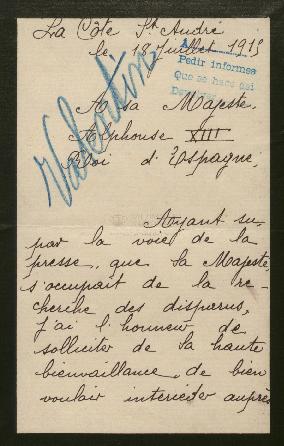 La Côte St André
le 18 Juillet 1915
Pedir informes
Que se hace asi
Valentin
A sa Majesté
Alphonse XIII
Roi d'Espagne,
Ayant su,
par la voie de la
presse, que Sa Majesté
s'occupait de la re-
cherche des disparus,
j'ai l'honneur de
solliciter de Sa haute
bienvaillance, de bien
vouloir interceder auprès